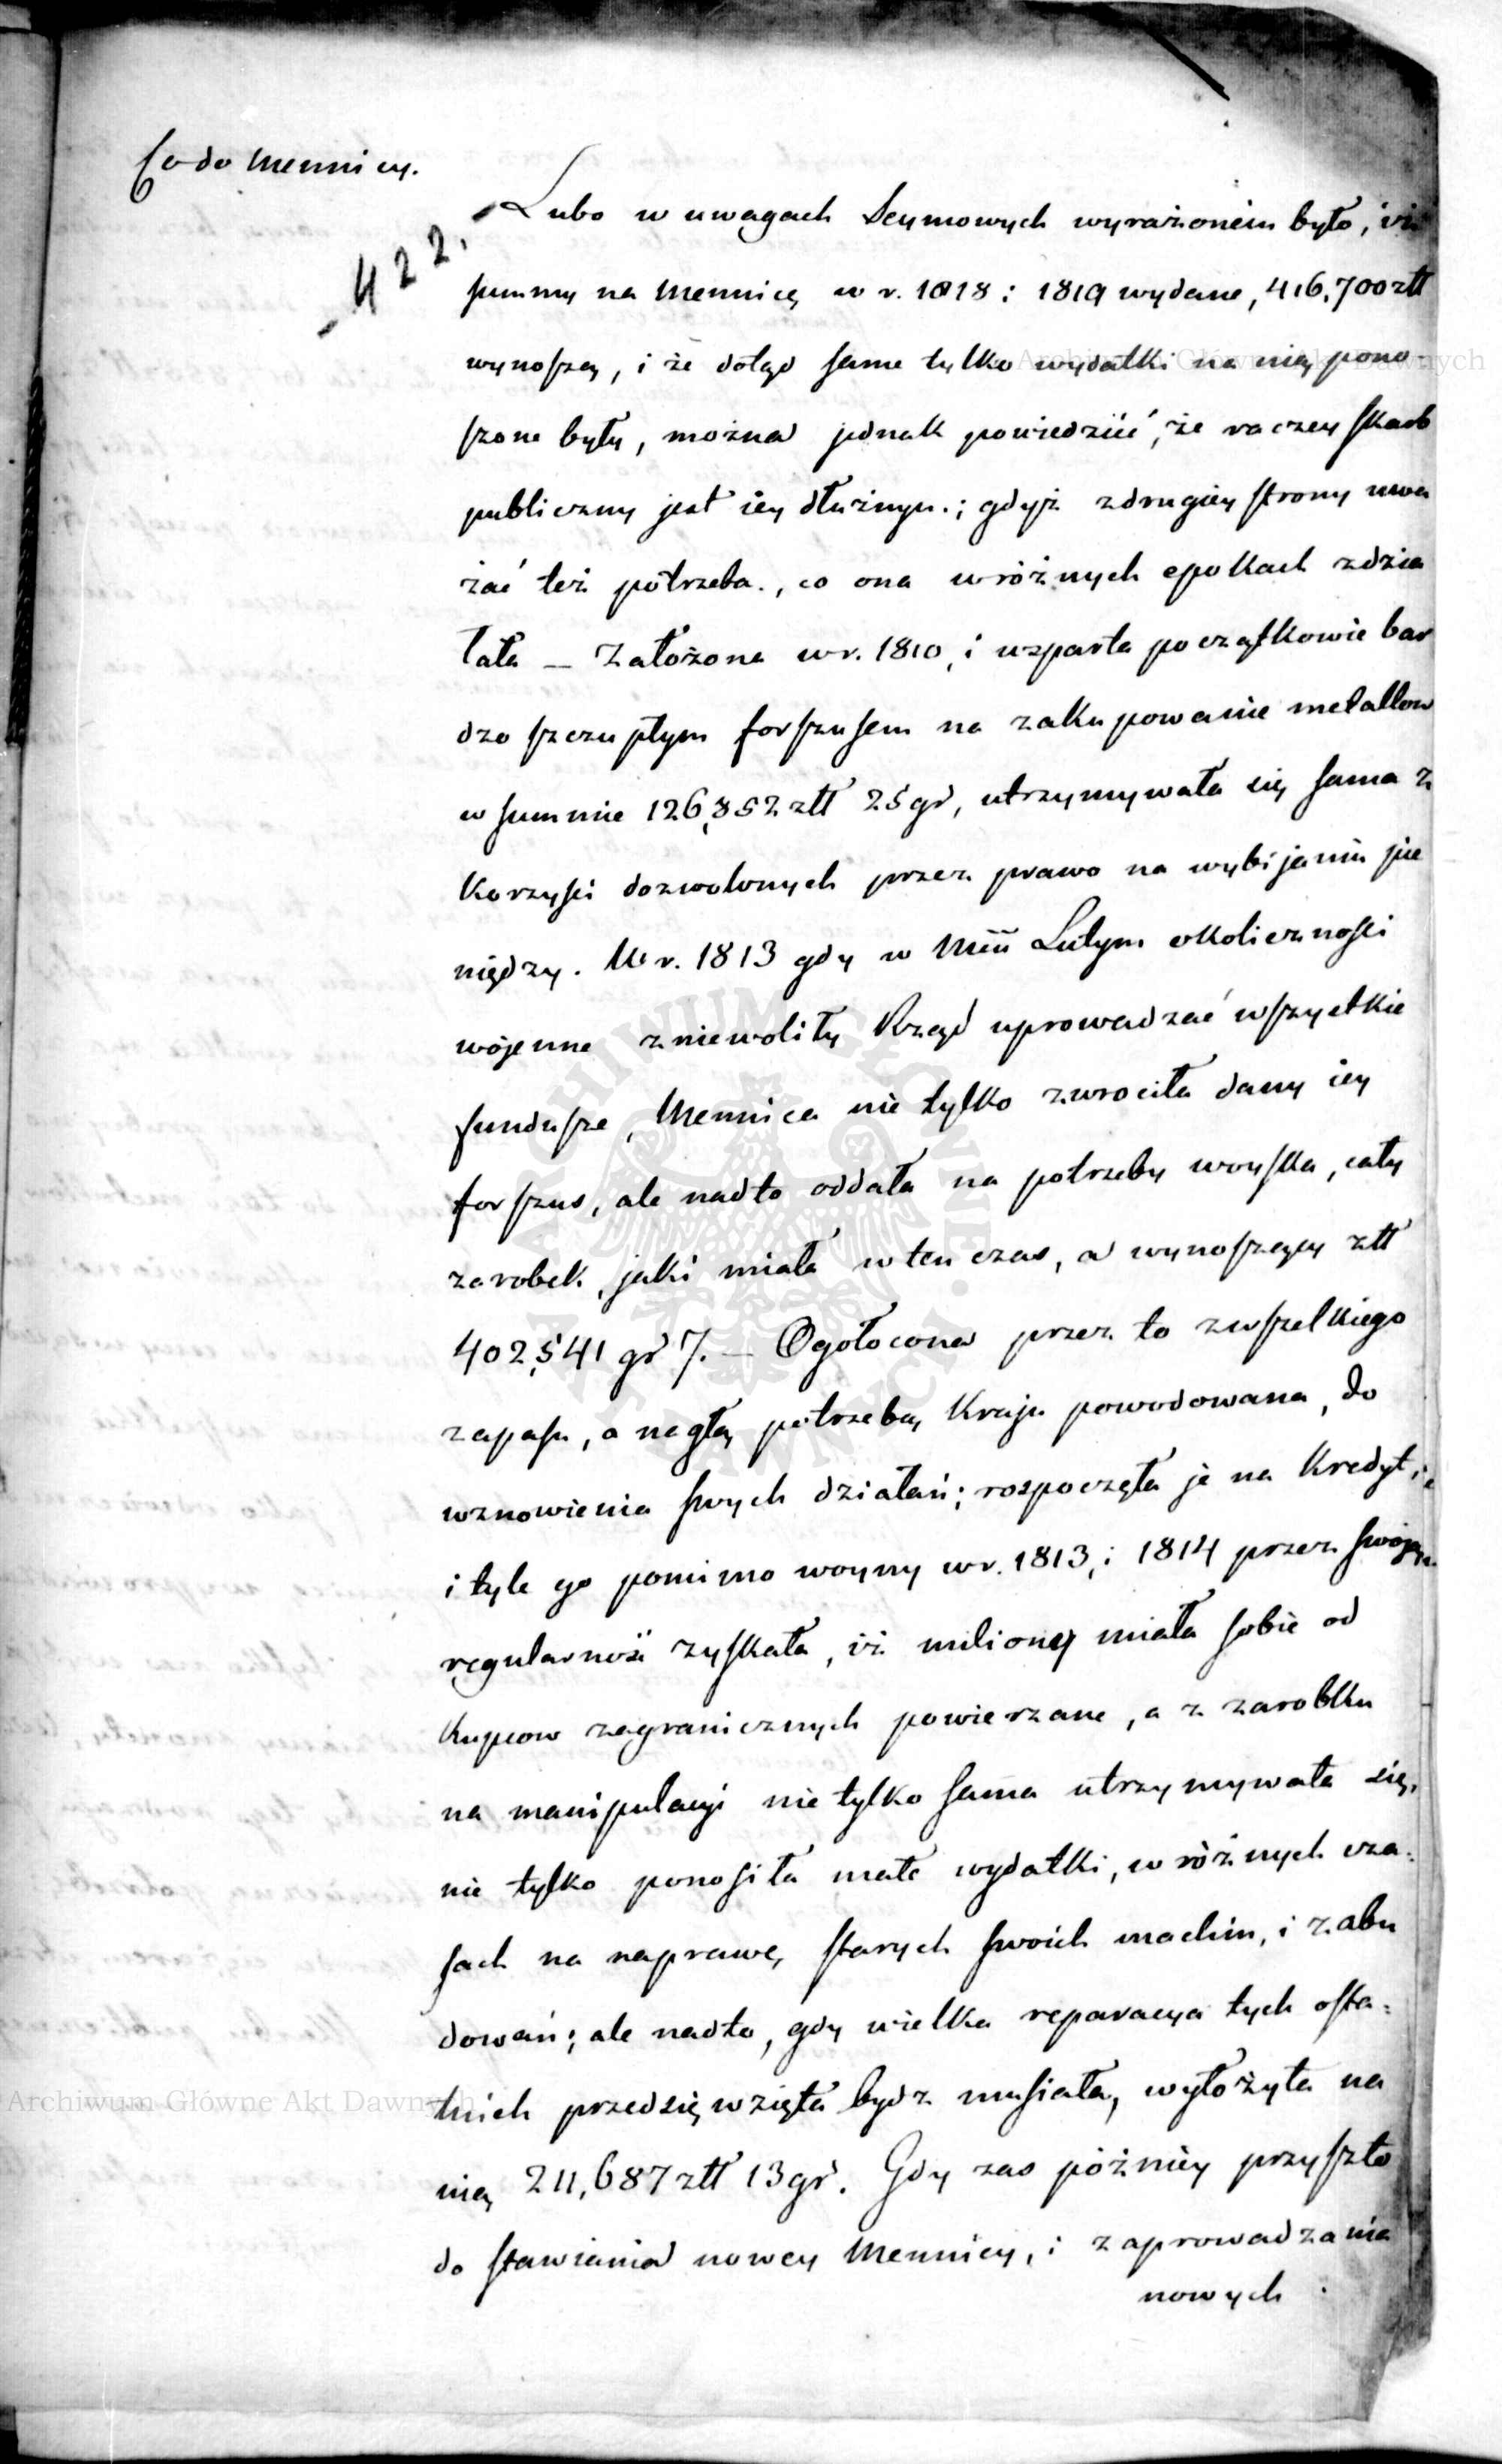 Co do Mennicy.
422.
Lubo w uwagach Seymowych wyrażonem było, iż
summy na Mennicę w r. 1818 i 1819 wydane, 416,700 złł
wynoszą, i że dotąd same tylko wydatki na nią pono-
szone były, można jednak powiedzieć, że raczey skarb
publiczny jest iey dłużnym.; gdyż z drugiey strony uwa
żać też potrzeba., co ona w różnych epokach zdzia
łała — Założona w r. 1810, i wsparta początkowie bar
dzo szczupłym forszusem na zakupowanie metallow
w summie 126,852 złł 25 gr, utrzymywała się sama z
korzyści dozwolonych przez prawo na wybijaniu pie
niędzy. W r. 1813 gdy w Mcu Lutym okoliczności
wojenne zniewoliły Rząd uprowadzać wszystkie
fundusze, Mennica nie tylko zwrociła dany iey
forszus, ale nadto oddała na potrzeby woyska, cały
zarobek, jaki miała w ten czas, a wynoszący złł
402,541 gr 7. — Ogołocona przez to z wszelkiego
zapasu, a nagłą potrzebą Kraju powodowana, do
wznowienia swych działań; rospoczęła je na Kredyt,
i tyle go pomimo woyny w r. 1813, i 1814 przez swoją
regularność zyskała, iż miliony miała sobie od
Kupcow zagranicznych powierzane, a z zarobku
na manipulacyi nie tylko sama utrzymywała się,
nie tylko ponosiła małe wydatki, w różnych cza-
sach na naprawę starych swoich machin, i zabu
dowań; ale nadto, gdy wielka reparacya tych osta-
tnich przedsięwzięta bydz musiała, wyłożyła na
nią 211,687 złł 13 gr. Gdy zas późniey przyszło
do stawiania nowey Mennicy, i zaprowadzania
nowych
Archiwum Główne Akt Dawnych
Archiwum Główne Akt Dawnych
ARCHIWUM GŁÓWNE AKT DAWNYCH